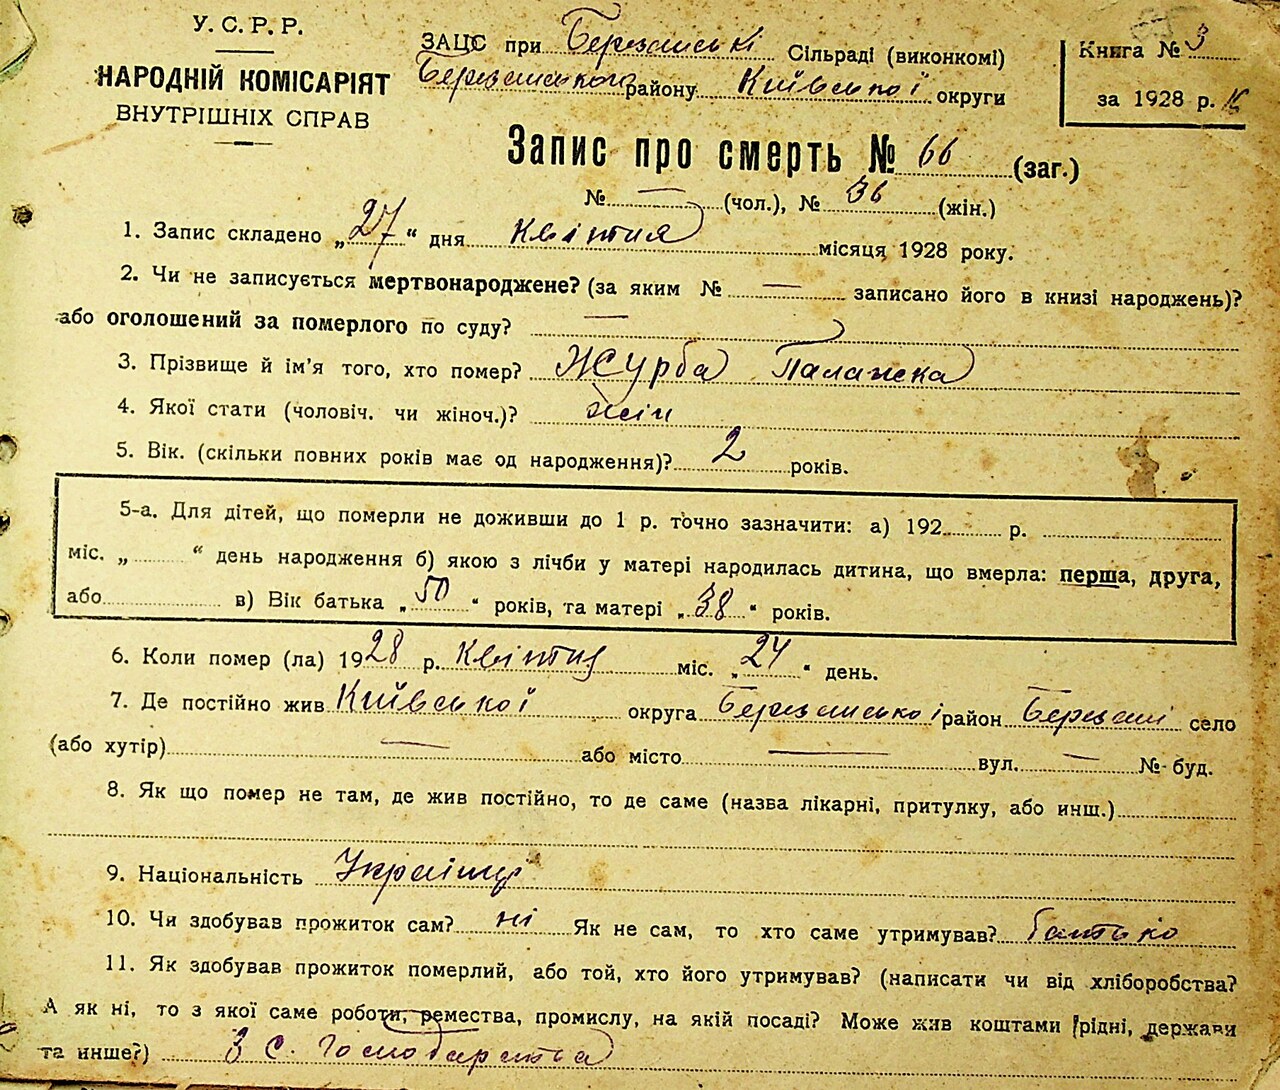 У.С.Р.Р.
НАРОДНІЙ КОМІСАРІЯТ
ВНУТРІШНІХ СПРАВ
ЗАЦС при Березанські Сільраді (виконкомі)
Березанського району Київської округи
Книга № 3
за 1928 р.
Запис про смерть № 66 (заг.)
№ — (чол.), № 36 (жін.)
1. Запис складено „27“ дня Квітня місяця 1928 року.
2. Чи не записується мертвонароджене? (за яким № — записано його в книзі народжень)?
або оголошений за померлого по суду? —
3. Прізвище й ім'я того, хто помер? Журба Палажка
4. Якої стати (чоловіч. чи жіноч.)? жін
5. Вік. (скільки повних років має од народження)? 2 років.
5-а. Для дітей, що померли не доживши до 1 р. точно зазначити: а) 192 р.
міс. „ “ день народження б) якою з лічби у матері народилась дитина, що вмерла: перша, друга,
або в) Вік батька „50“ років, та матері „38“ років.
6. Коли помер (ла) 1928 р. Квітня міс. „24“ день.
7. Де постійно жив Київської округа Березанської район Березані село
(або хутір) — або місто — вул. — № буд.
8. Як що помер не там, де жив постійно, то де саме (назва лікарні, притулку, або инш.)
9. Національність
10. Чи здобував прожиток сам? ні Як не сам, то хто саме утримував? батько
11. Як здобував прожиток померлий, або той, хто його утримував? (написати чи від хліборобства?
А як ні, то з якої саме роботи, ремества, промислу, на якій посаді? Може жив коштами (рідні, держави
та инше?) З с. господарства